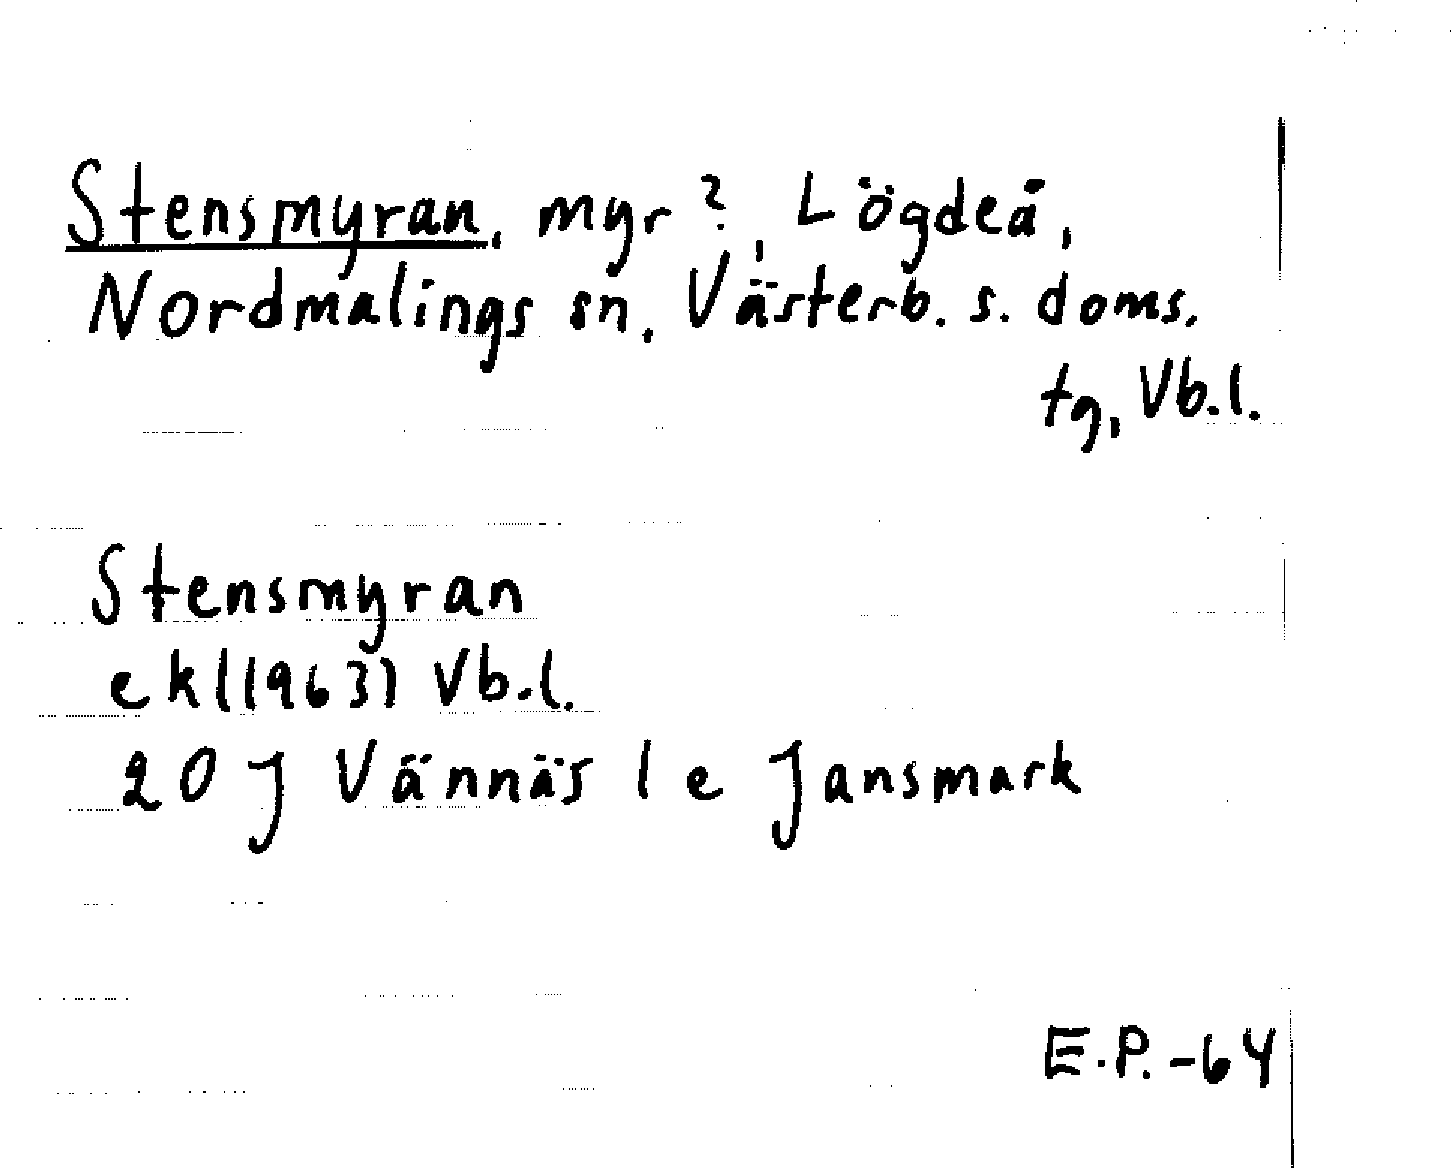 Stensmyran, myr?, Lögdeå,
Nordmalings sn, Västerb. s. doms.
tg, Vb.l.
Stensmyran
ek (1963) Vb.l.
20 J Vännäs 1 e Jansmark
E.P. -64